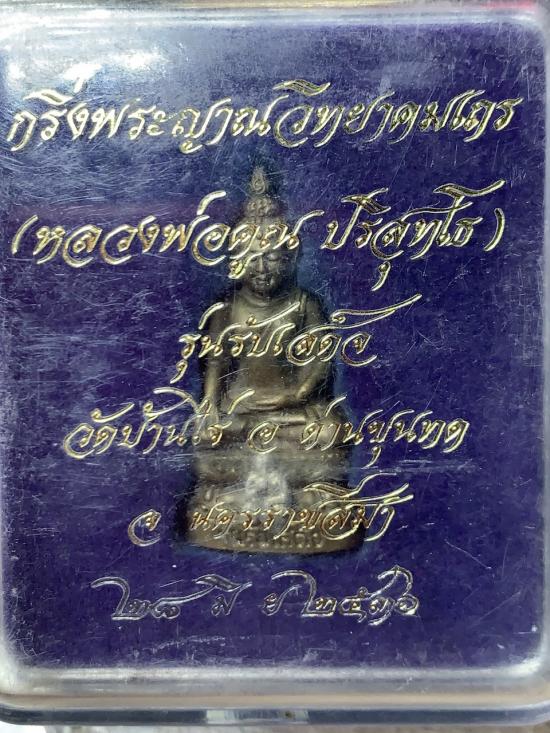 กริ่งพระญาณวิทยาคมเถร
(หลวงพ่อคูณ ปริสุทโธ)
รุ่นรับเสด็จ
วัดบ้านไร่ อ ด่านขุนทด
จ นครราชสีมา
๒๘ มิ ย ๒๕๓๖